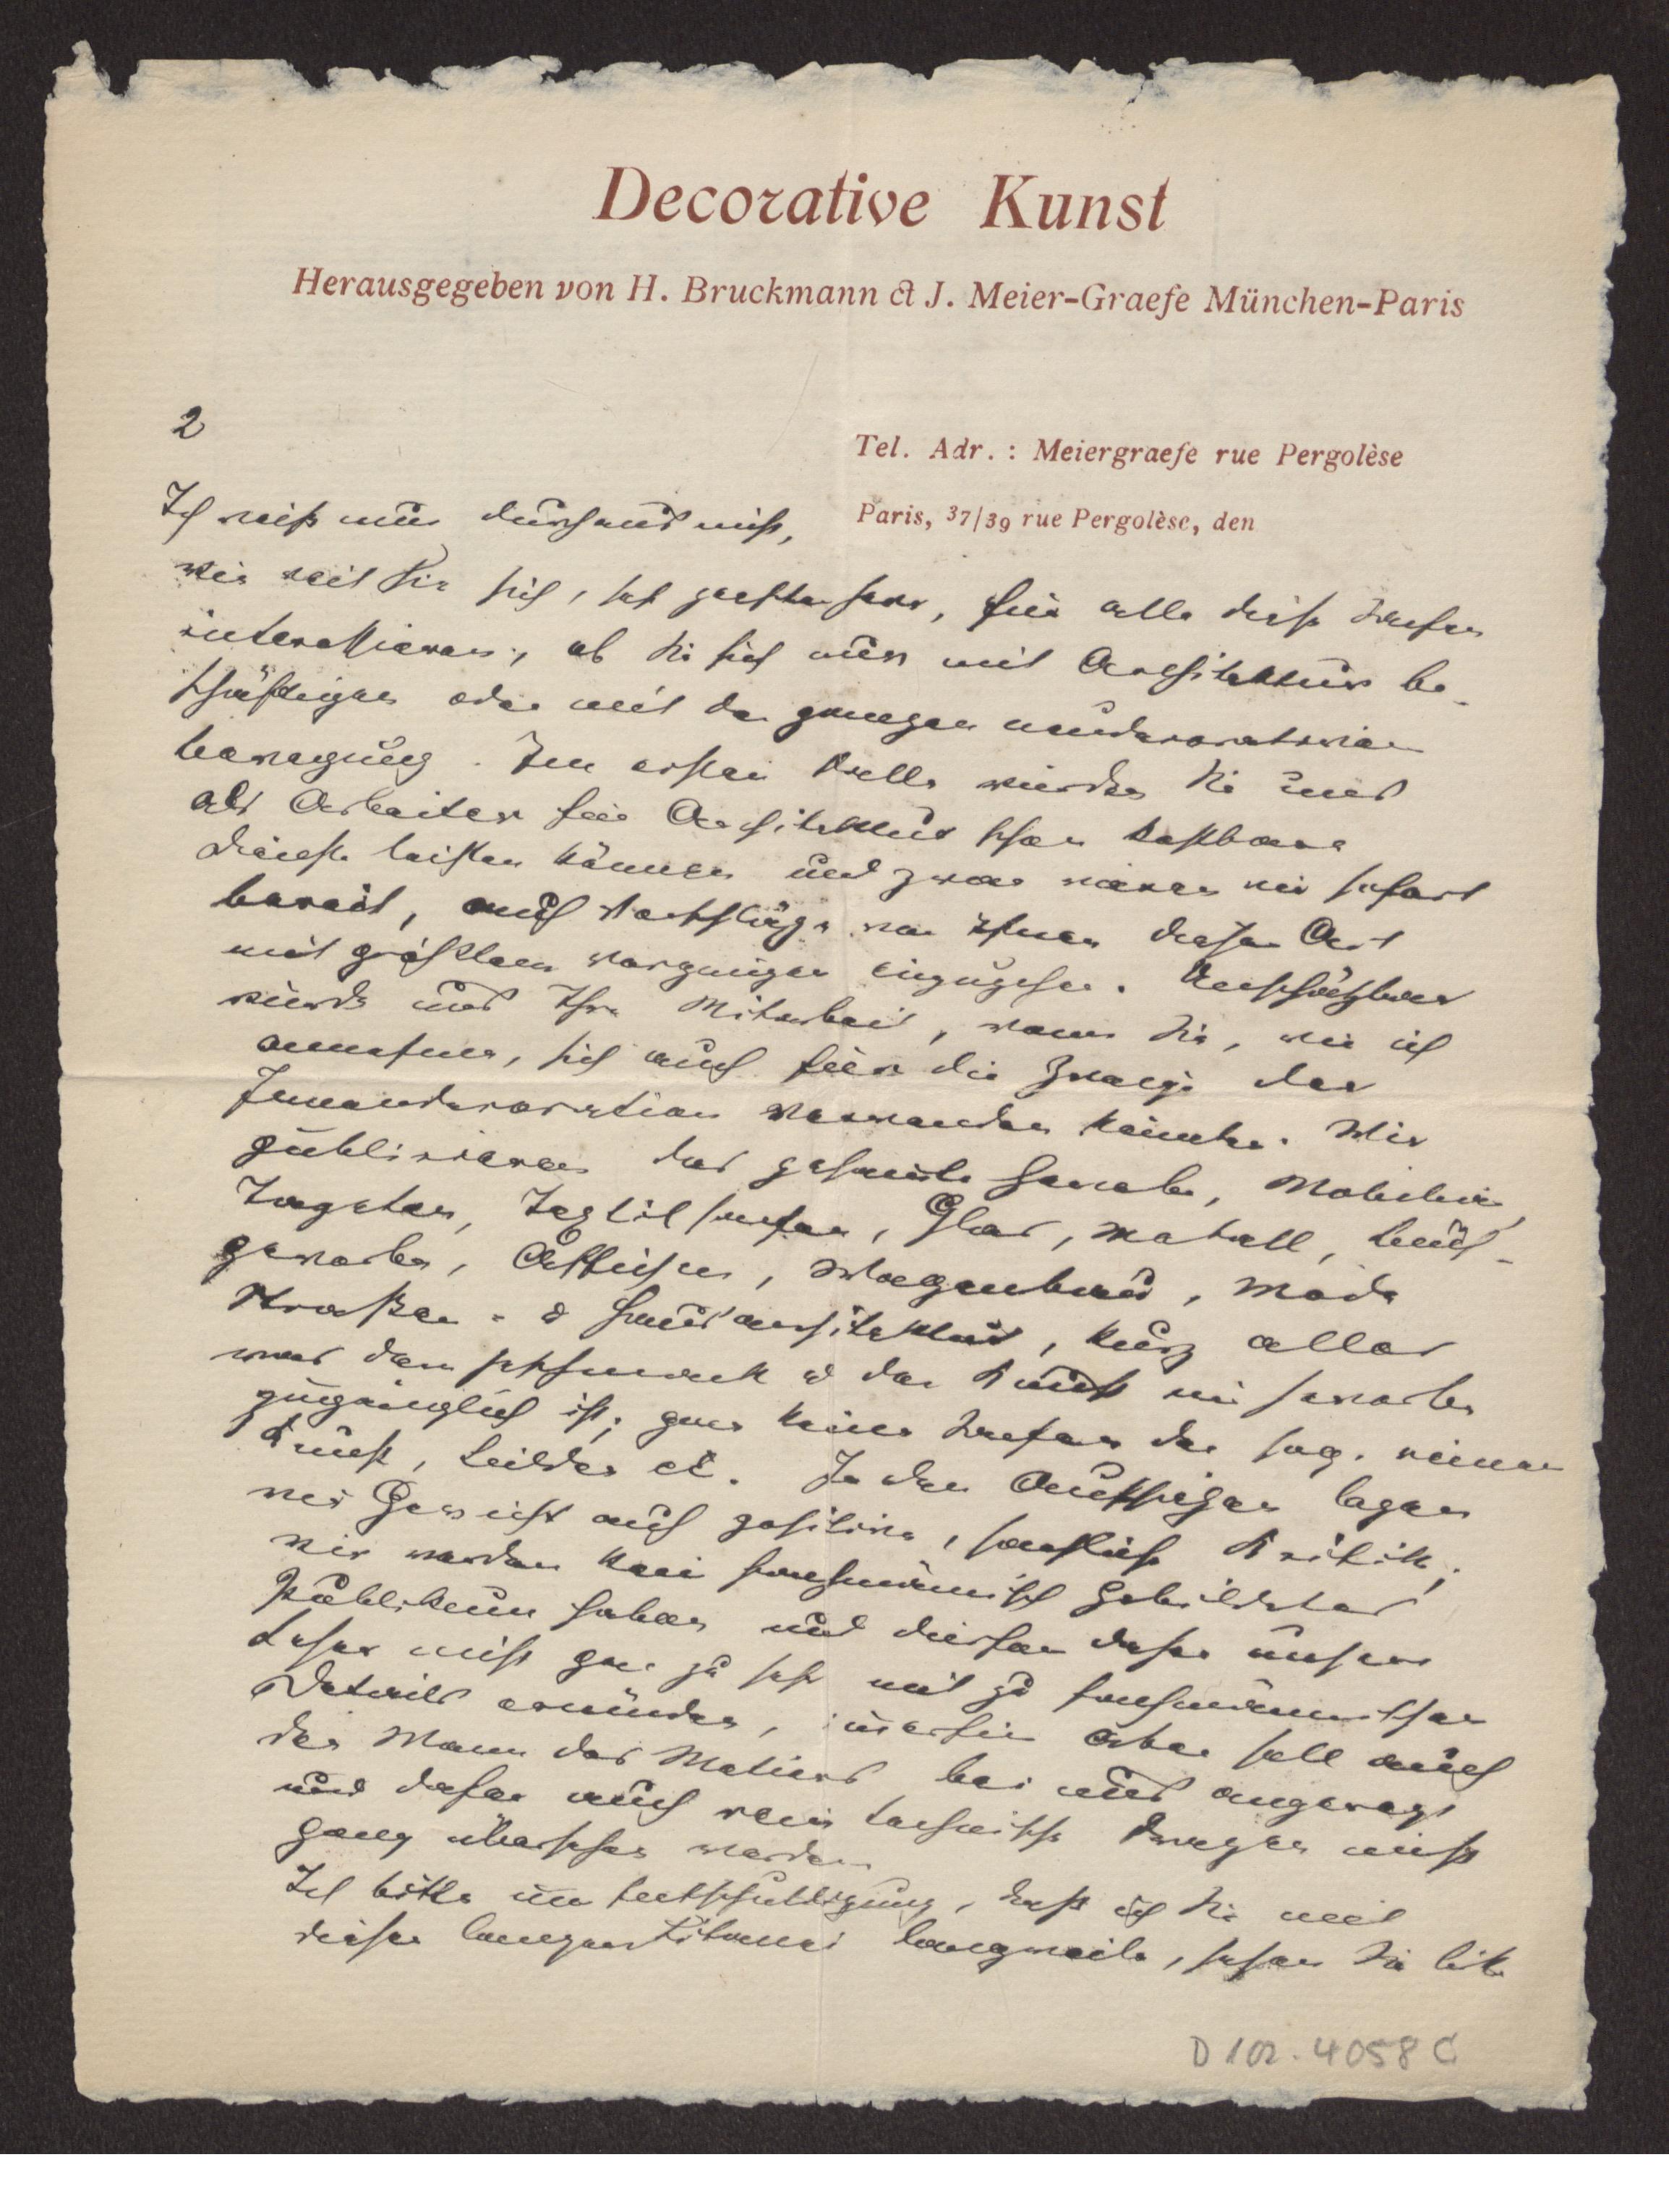 Decorative Kunst
Herausgegeben von H. Bruckmann & J. Meier-Graefe München-Paris
2
Tel. Adr. : Meiergraefe rue Pergolèse
Paris, 37/39 rue Pergolèse, den
Ich weiß nun durchaus nicht,
wie weit Sie sich, sehr geehrter Herr, für alle diese Sachen
interessieren, ob Sie sich nur mit Architektur be-
schäftigen oder mit der ganzen neudecorativen
bewegung. Im ersten Falle würden Sie uns
als Arbeiter für Architektur schon kostbare
dienste leisten können und zwar wären wir sofort
bereit, auf Vorschläge von Ihnen dieser Art
mit größtem vergnügen einzugehen. Unschätzbar
würde uns Ihre Mitarbeit, wenn Sie, wie ich
annehme, sich auch für die Zweige der
Innendecoration verwenden könnten. Wir
publicieren das gesamte Gewerbe, Mobiliar,
Tapeten, Textilsachen, Glas, Metall, Buch-
gewerbe, Affichen, Wagenbau, Mode
Straßen- & Hausarchitektur, kurz alles
was dem schmuck & der Kunst im Gewerbe
zugänglich ist; gar keine Sachen der sog. reinen
Kunst, bilder etc. In den Aufsätzen legen
wir Gewicht auf positive, sachliche Kritik;
wir werden kein fachmännisch gebildetes
Publikum haben und dürfen daher unsere
Leser nicht gar zu sehr mit zu fachmännischen
Details ermüden, immerhin aber soll auch
der Mann des Metiers bei uns angeregt
und daher auch rein technische Fragen nicht
ganz übersehen werden.
Ich bitte um Entschuldigung, daß ich Sie mit
dieser langen Litanei langweile, sehen Sie bitte
D 102. 4058 C